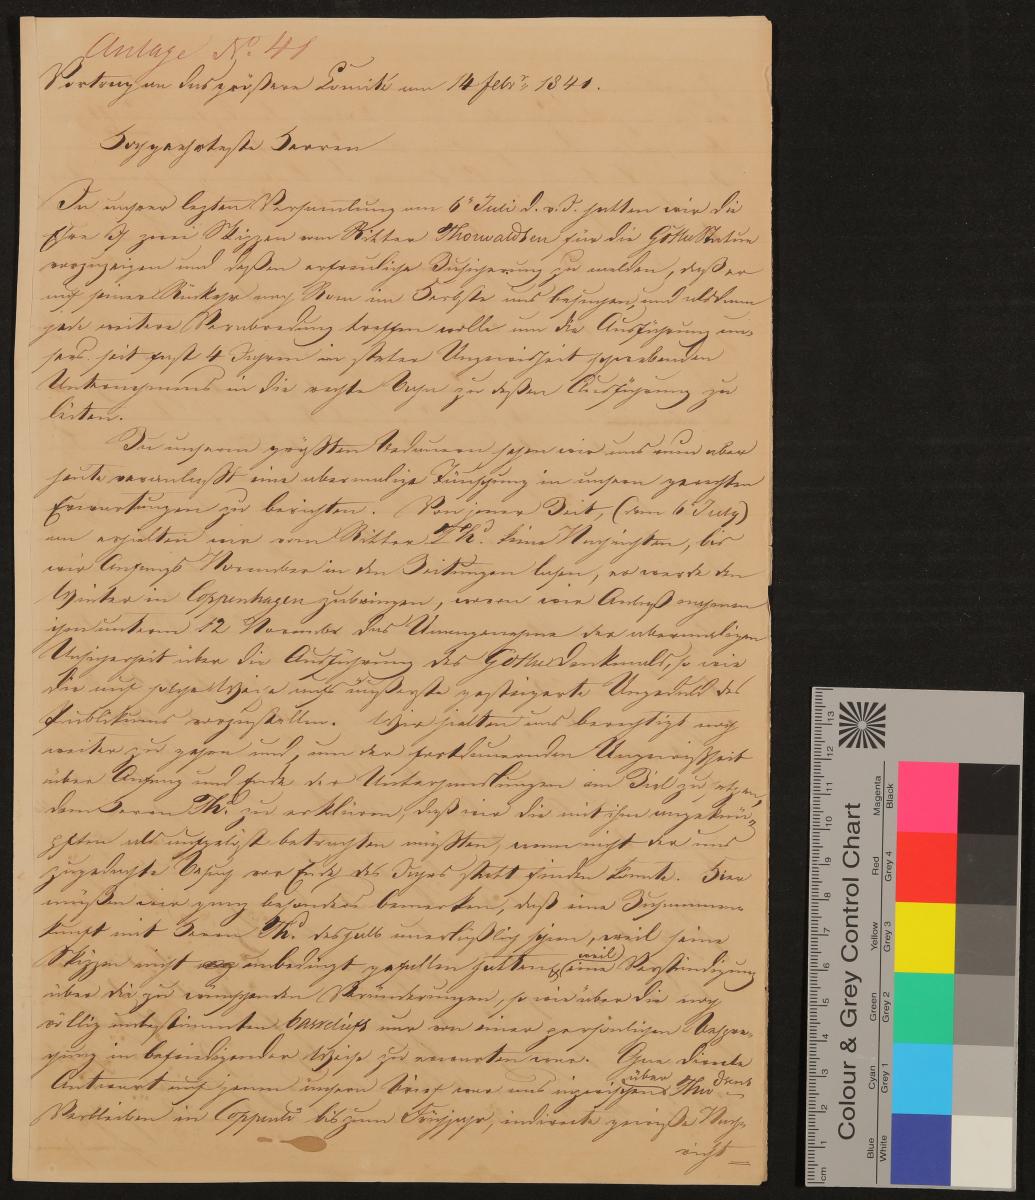 Anlage No. 41
Vortrag an das größere Comité am 14 Febr. 1841.
Hochgeehrteste Herren
In unsrer lezten Versammlung am 6n Juli d. v. J. hatten wir die
Ehre zwei Skizzen von Ritter Thorwaldsen für die Göthe Statue
vorzuzeigen und deßen erfreuliche Zusicherung zu melden, daß er
auf seiner Rückkehr nach Rom im Herbste uns besuchen, und alsdann
jede weitere Verabredung treffen wolle um die Ausführung un-
sers seit fast 4 Jahren in steter Ungewißheit schwebenden
Unternehmens in die rechte Bahn zu deßen Ausführung zu
leiten.
Zu unserm größten Bedauern sehen wir uns nun aber
heute veranlaßt eine abermalige Täuschung in unsern gerechten
Erwartungen zu berichten. Von jener Zeit (dem 6 July)
an erhielten wir vom Ritter Th. keine Nachrichten, bis
wir Anfangs November in den Zeitungen lasen, er werde den
Winter in Coppenhagen zubringen, wovon wir Anlaß nahmen
ihm unterm 12 November das Unangenehme der abermaligen
Unsicherheit über die Ausführung des Göthedenkmals, so wie
die auf solche Weise aufs äußerste gesteigerte Ungeduld des
Publikums vorzustellen. Wir hielten uns berechtigt noch
weiter zu gehen und, um der fortdauernden Ungewißheit
über Anfang und Ende der Unterhandlungen ein Ziel zu setzen,
dem Herrn Th. zu erklären, daß wir die mit ihm angeknü-
pften als aufgelößt betrachten müßten, wenn nicht der uns
zugedachte Besuch vor Ende des Jahrs statt finden könnte. Hier
müßen wir ganz besonders bemerken, daß eine Zusammen-
kunft mit Herrn Th. deshalb unerläßlich schien, weil seine
Skizzen nicht unbedingt gefallen hatten & weil eine Verständigung
über die zu wünschenden Veränderungen, so wie über die noch
völlig unbestimmten basreliefs nur von einer persönlichen Bespre-
chung in befriedigender Weise zu erwarten war. Ohne directe
Antwort auf jenen unsern Brief war uns inzwischen über Tho
Verbleiben in Coppenh. bis zum Frühjahr, indirecte gewiße Nach-
richt